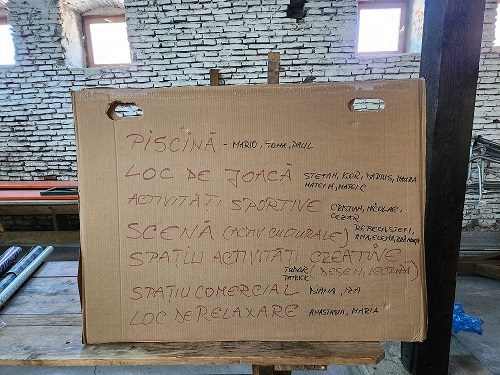 PISCINĂ - MARIO, TOMA, PAUL
LOC DE JOACĂ STEFAN, IGOR, DARIUS, MAIRA
MATEI M, MATEI C
ACTIVITĂȚI SPORTIVE CRISTIAN, NICOLAE,
CEZAR
SCENĂ (ACTIV. CULTURALE) REBECCA, STEFI,
ANA, ELENA,
SPAȚIU ACTIVITĂȚI CREATIVE
TUDOR (DESEN, LECTURĂ)
PATRICK
SPAȚIU COMERCIAL DIANA, IZA
LOC DE RELAXARE ANASTASIA, MARIA